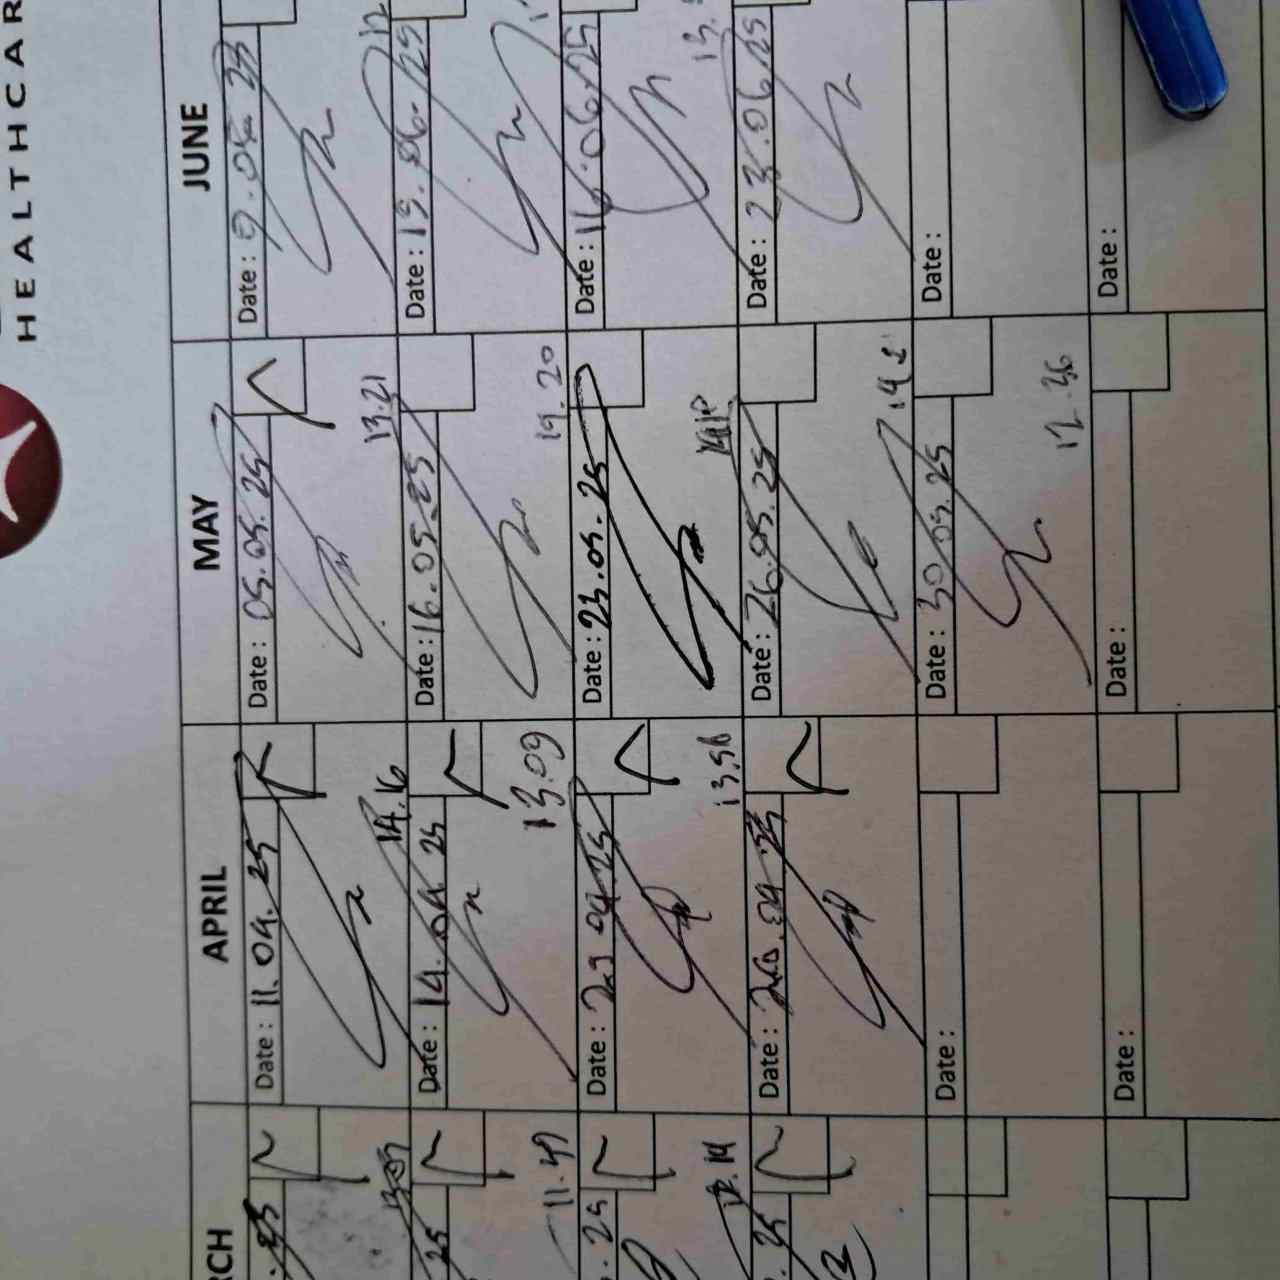 HEALTHCAR
RCH
APRIL
MAY
JUNE
25
Date: 11.04.25
Date: 05.05.25
Date: 9.
14.16
13.21
12
25
Date: 14.04 25
Date: 16.05.25
Date: 13.06.25
11.49
13.09
19.20
25
Date: 23 04 25
Date: 23.05.25
Date: 16.06.25
12.14
13.56
13.
25
Date:
Date: 26.05.25
Date: 23.06.25
Date:
Date: 30.05.25
Date:
12.36
Date:
Date:
Date: